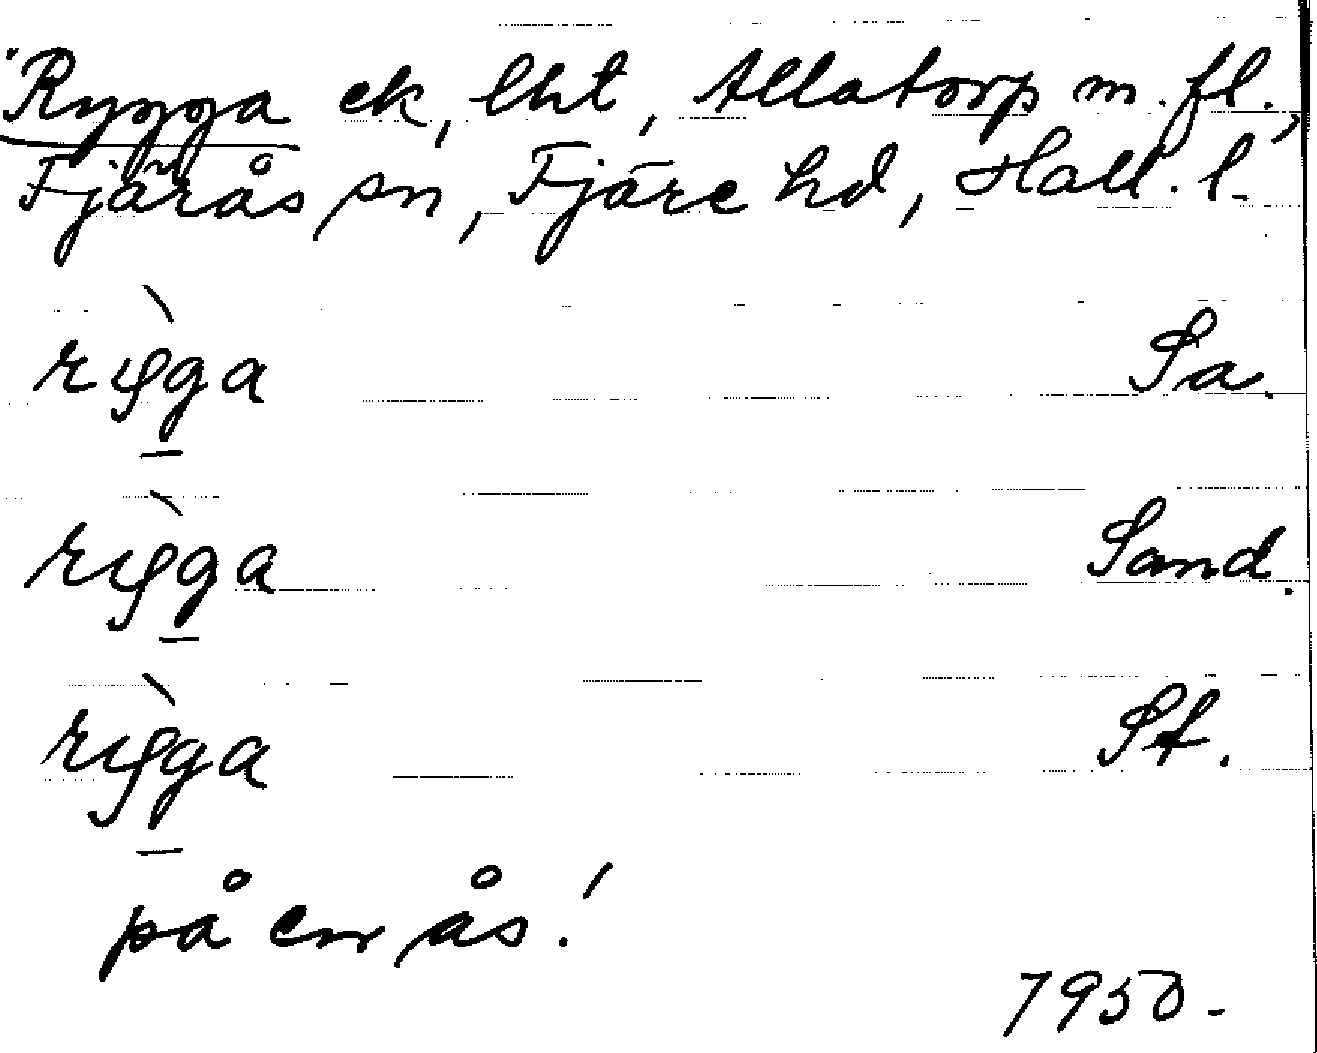 Rygga ek, lht, Allatorp m.fl.,
Fjärås sn, Fjäre hd, Hall. l.
Sa.
Sand.
St.
på en ås!
1950.